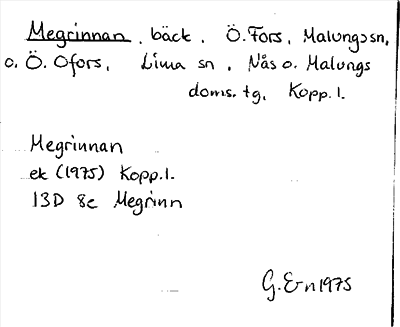 Megrinnan, bäck, Ö. Fors, Malungs sn,
o. Ö. Ofors, Lima sn, Nås o. Malungs
doms. tg, Kopp. l.
Megrinnan
ek (1975) Kopp. l.
13D 8c Megrinn
G. E-n 1975